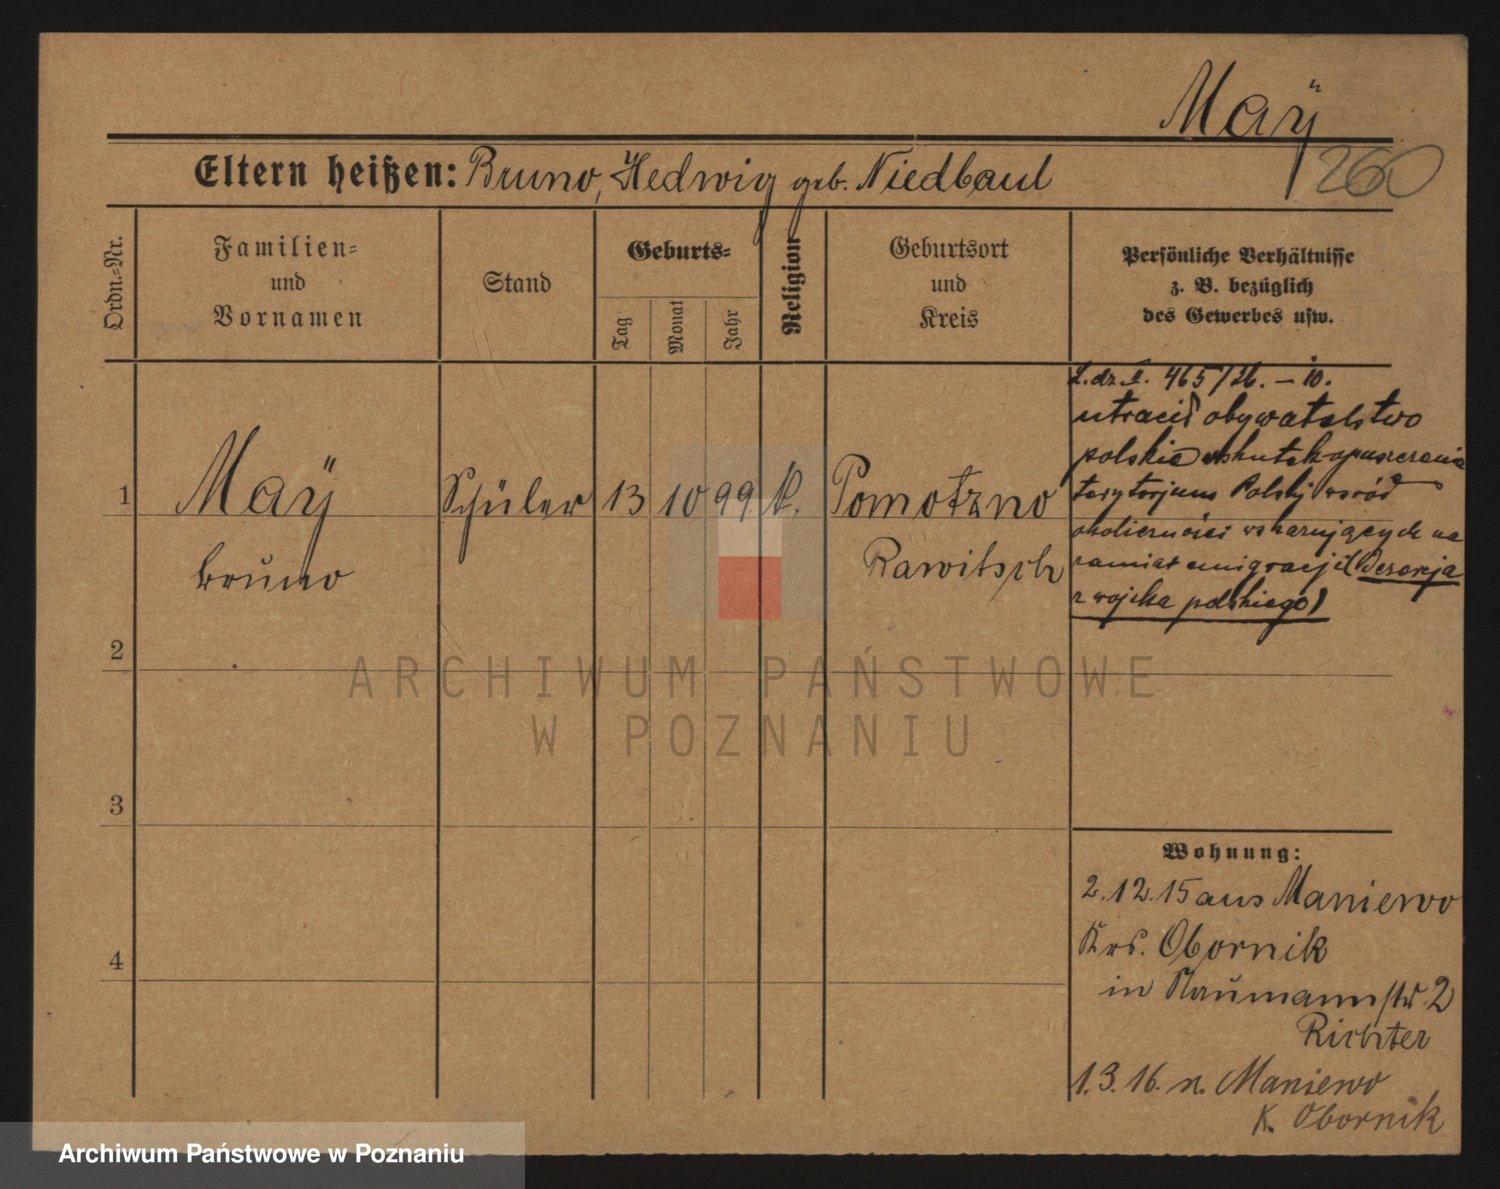 Maÿ
260
Eltern heißen: Bruno, Hedwig geb. Niedbaul
Ordn.-Nr.
Familien-
und
Vornamen
Stand
Geburts-
Tag
Monat
Jahr
Religion
Geburtsort
und
Kreis
Persönliche Verhältnisse
z. B. bezüglich
des Gewerbes usw.
L.dz. I. 465/26. – 10.
utracił obywatelstwo
polskie wskutek opuszczenia
terytorjum Polski wśród
okoliczności wskazujących na
zamiar emigracji (Dezercja
z wojska polskiego)
1
Maÿ
Bruno
Schüler
13
10
99
k.
Pomotzno
Rawitsch
2
3
4
Wohnung:
2.12.15 aus Maniewo
Krs. Obornik
in Naumannstr. 2
Richter
1.3.16. n. Maniewo
K. Obornik
ARCHIWUM PAŃSTWOWE
W POZNANIU
Archiwum Państwowe w Poznaniu